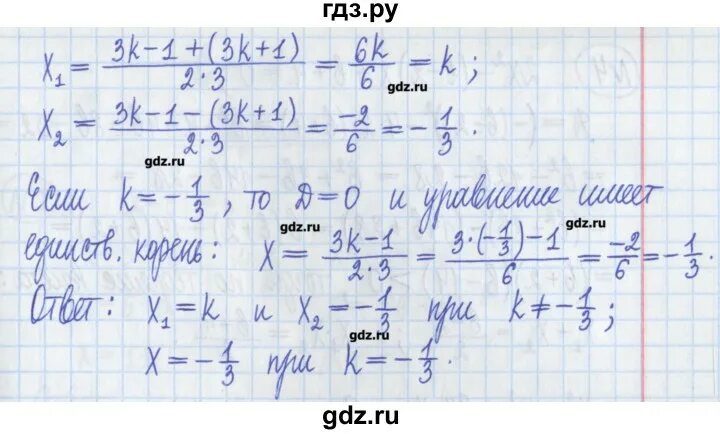 гдз.ру
x₁ = (3k−1+(3k+1))/(2·3) = 6k/6 = k;
gdz.ru
x₂ = (3k−1−(3k+1))/(2·3) = −2/6 = −1/3.
gdz.ru
Если k = −1/3, то D=0 и уравнение имеет
gdz.ru gdz.ru
единств. корень: x = (3k−1)/(2·3) = (3·(−1/3)−1)/6 = −2/6 = −1/3.
Ответ: x₁ = k и x₂ = −1/3 при k ≠ −1/3;
gdz.ru
x = −1/3 при k = −1/3.
gdz.ru